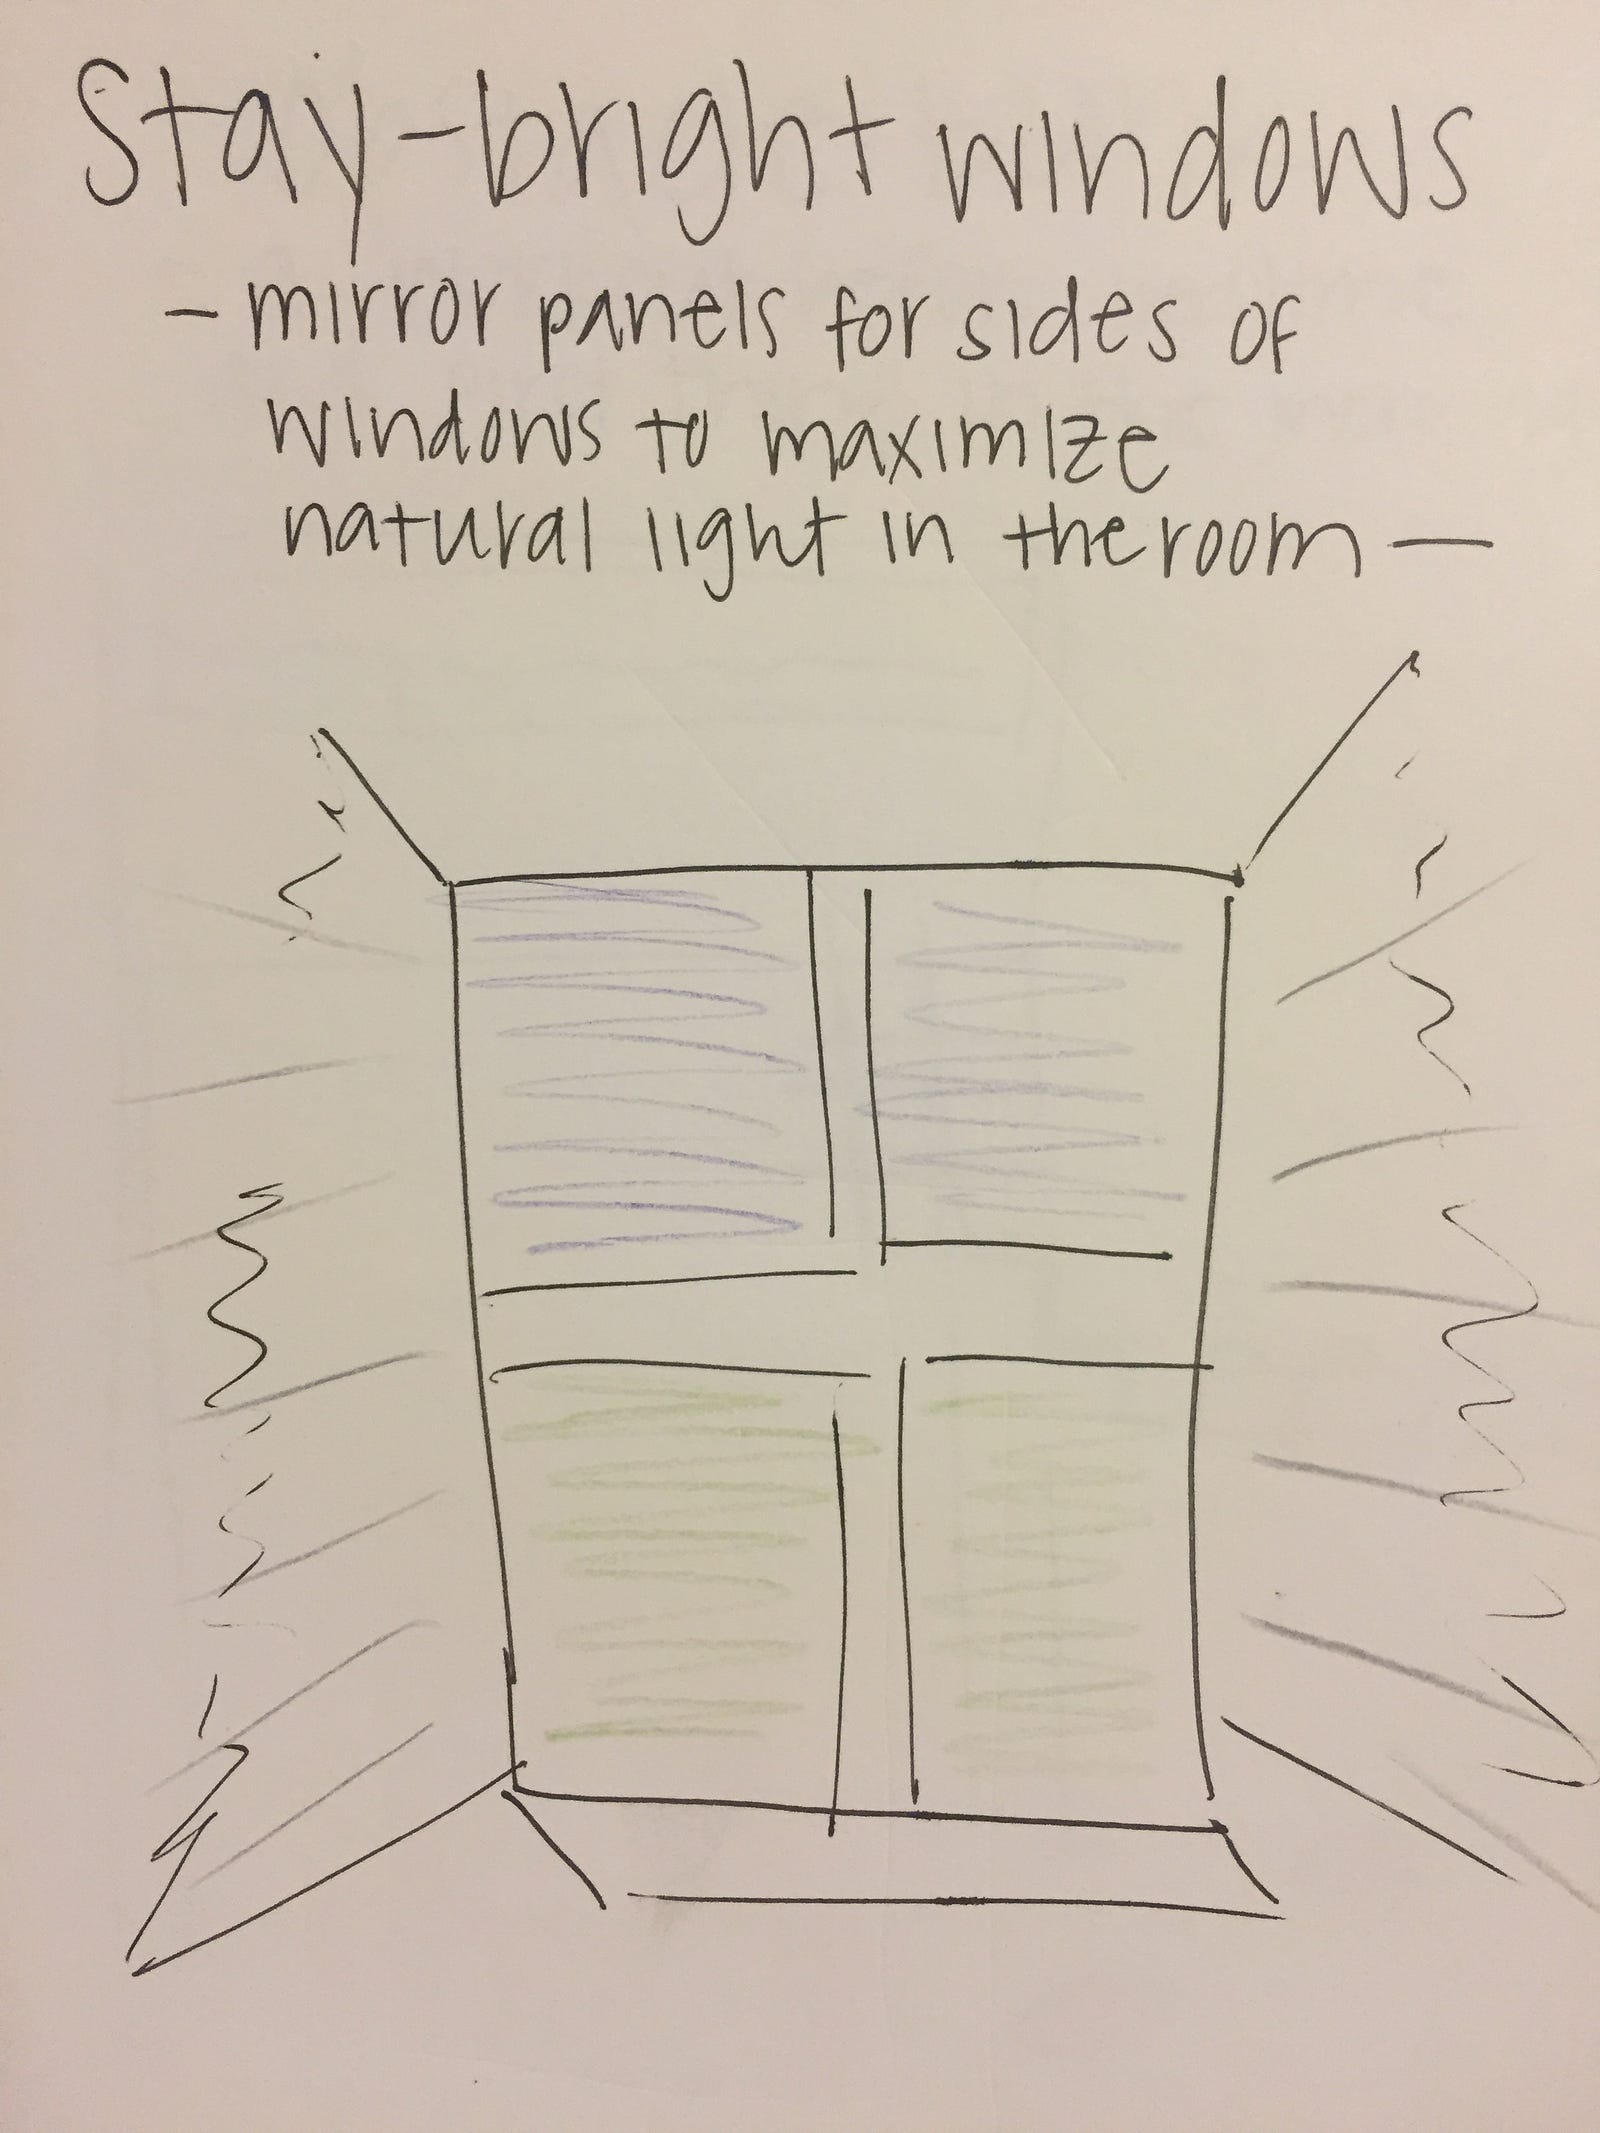 Stay-bright windows
- mirror panels for sides of
windows to maximize
natural light in the room -